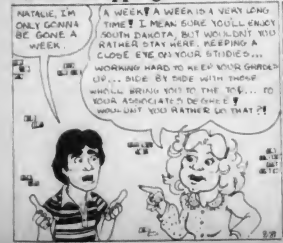 NATALIE, I'M
ONLY GONNA
BE GONE A
WEEK.
A WEEK? A WEEK IS A VERY LONG
TIME! I MEAN SURE YOU'LL ENJOY
SOUTH DAKOTA, BUT WOULDN'T YOU
RATHER STAY HERE, KEEPING A
CLOSE EYE ON YOUR STUDIES...
WORKING HARD TO KEEP YOUR GRADES
UP... SIDE BY SIDE WITH THOSE
WHO'LL BRING YOU TO THE TOP... TO
YOUR ASSOCIATES DEGREE!
WOULDN'T YOU RATHER DO THAT?!